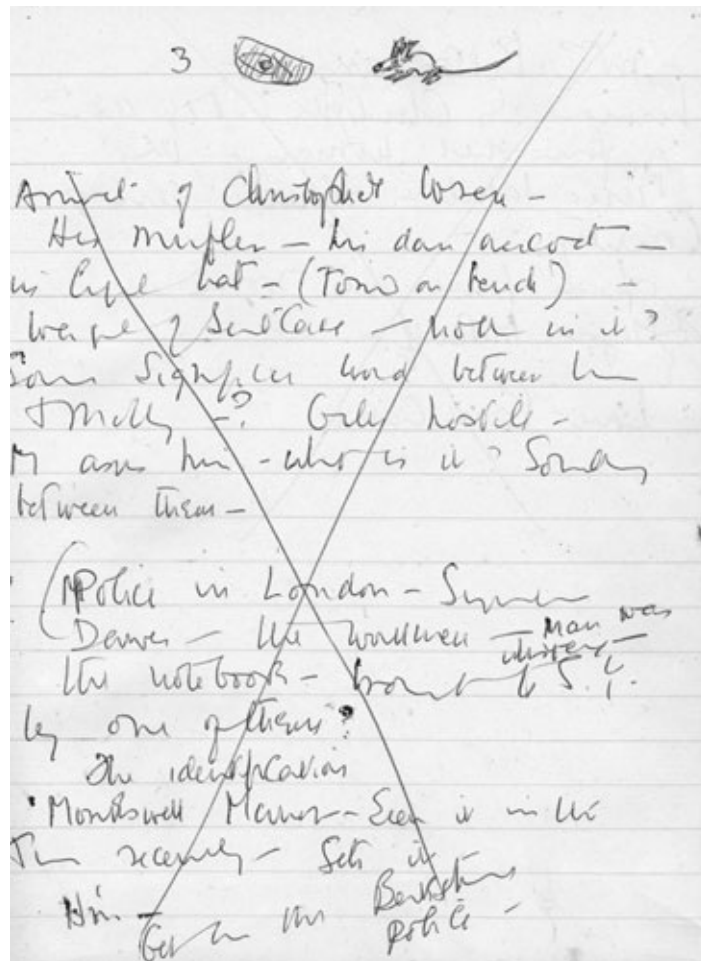 3
Arrival of Christopher Wren –
His muffler – his dark overcoat –
his light hat – (Throws on bench) –
Weight of SuitCase – nothing in it?
Some Significant word between him
& Molly –? Giles hostile –
M asks him – who is it? Somebody
between them –
(Police in London – 
– the workmen – Man was
the notebook – brought to S.Y.
by one of them?
The identification
Monkswell Manor – Seen it in the
recently – Gets it
Him –
Get on the Berkshire
police –